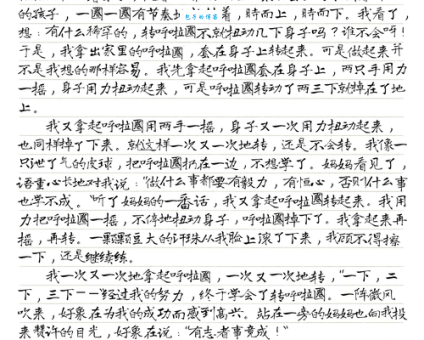 的孩子，一圈一圈有节奏 着，时而上，时而下。我看了，
想：有什么稀罕的，转呼啦圈不就扭动几下身子吗？谁不会呀！
于是，我拿出家里的呼啦圈，套在身上转起来。可是做起来并
不是我想的那样容易。我先拿起呼啦圈套在身上，两只手用力
一摇，身子用力扭动起来，可是呼啦圈转动了两三下就掉在了地
上。
我又拿起呼啦圈用两手一摇，身子又一次用力扭动起来，
也同样掉了下来。就这样一次又一次地转，还是不会转。我像一
只泄了气的皮球，把呼啦圈扔在一边，不想学了。妈妈看见了，
语重心长地对我说："做什么事都要有毅力，有恒心，否则什么事
也学不成。"听了妈妈的一番话，我又拿起呼啦圈转起来。我用
力把呼啦圈一摇，不停地扭动身子，呼啦圈掉下了。我拿起来再
摇，再转。一颗颗豆大的汗珠从我脸上滚了下来，我顾不得擦
一下，还是继续练。
我一次又一次地拿起呼啦圈，一次又一次地转，"一下，二
下，三下——"经过我的努力，终于学会了转呼啦圈。一阵微风
吹来，好象在为我的成功而感到高兴。站在一旁的妈妈也向我投
来赞许的目光，好象在说："有志者事竟成！"